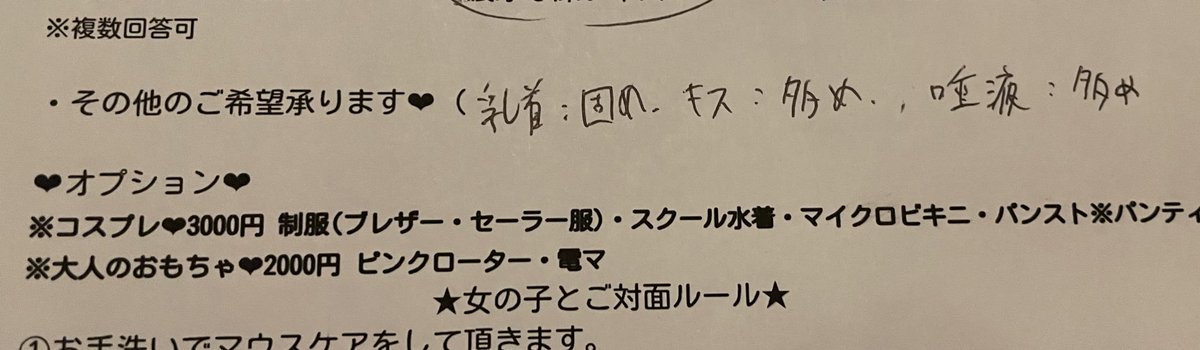 ※複数回答可
・その他のご希望承ります❤（乳首：固め、キス：多め、，唾液：多め
❤オプション❤
※コスプレ❤3000円 制服(ブレザー・セーラー服)・スクール水着・マイクロビキニ・パンスト※パンティ
※大人のおもちゃ❤2000円 ピンクローター・電マ
★女の子とご対面ルール★
①お手洗いでマウスケアをして頂きます。